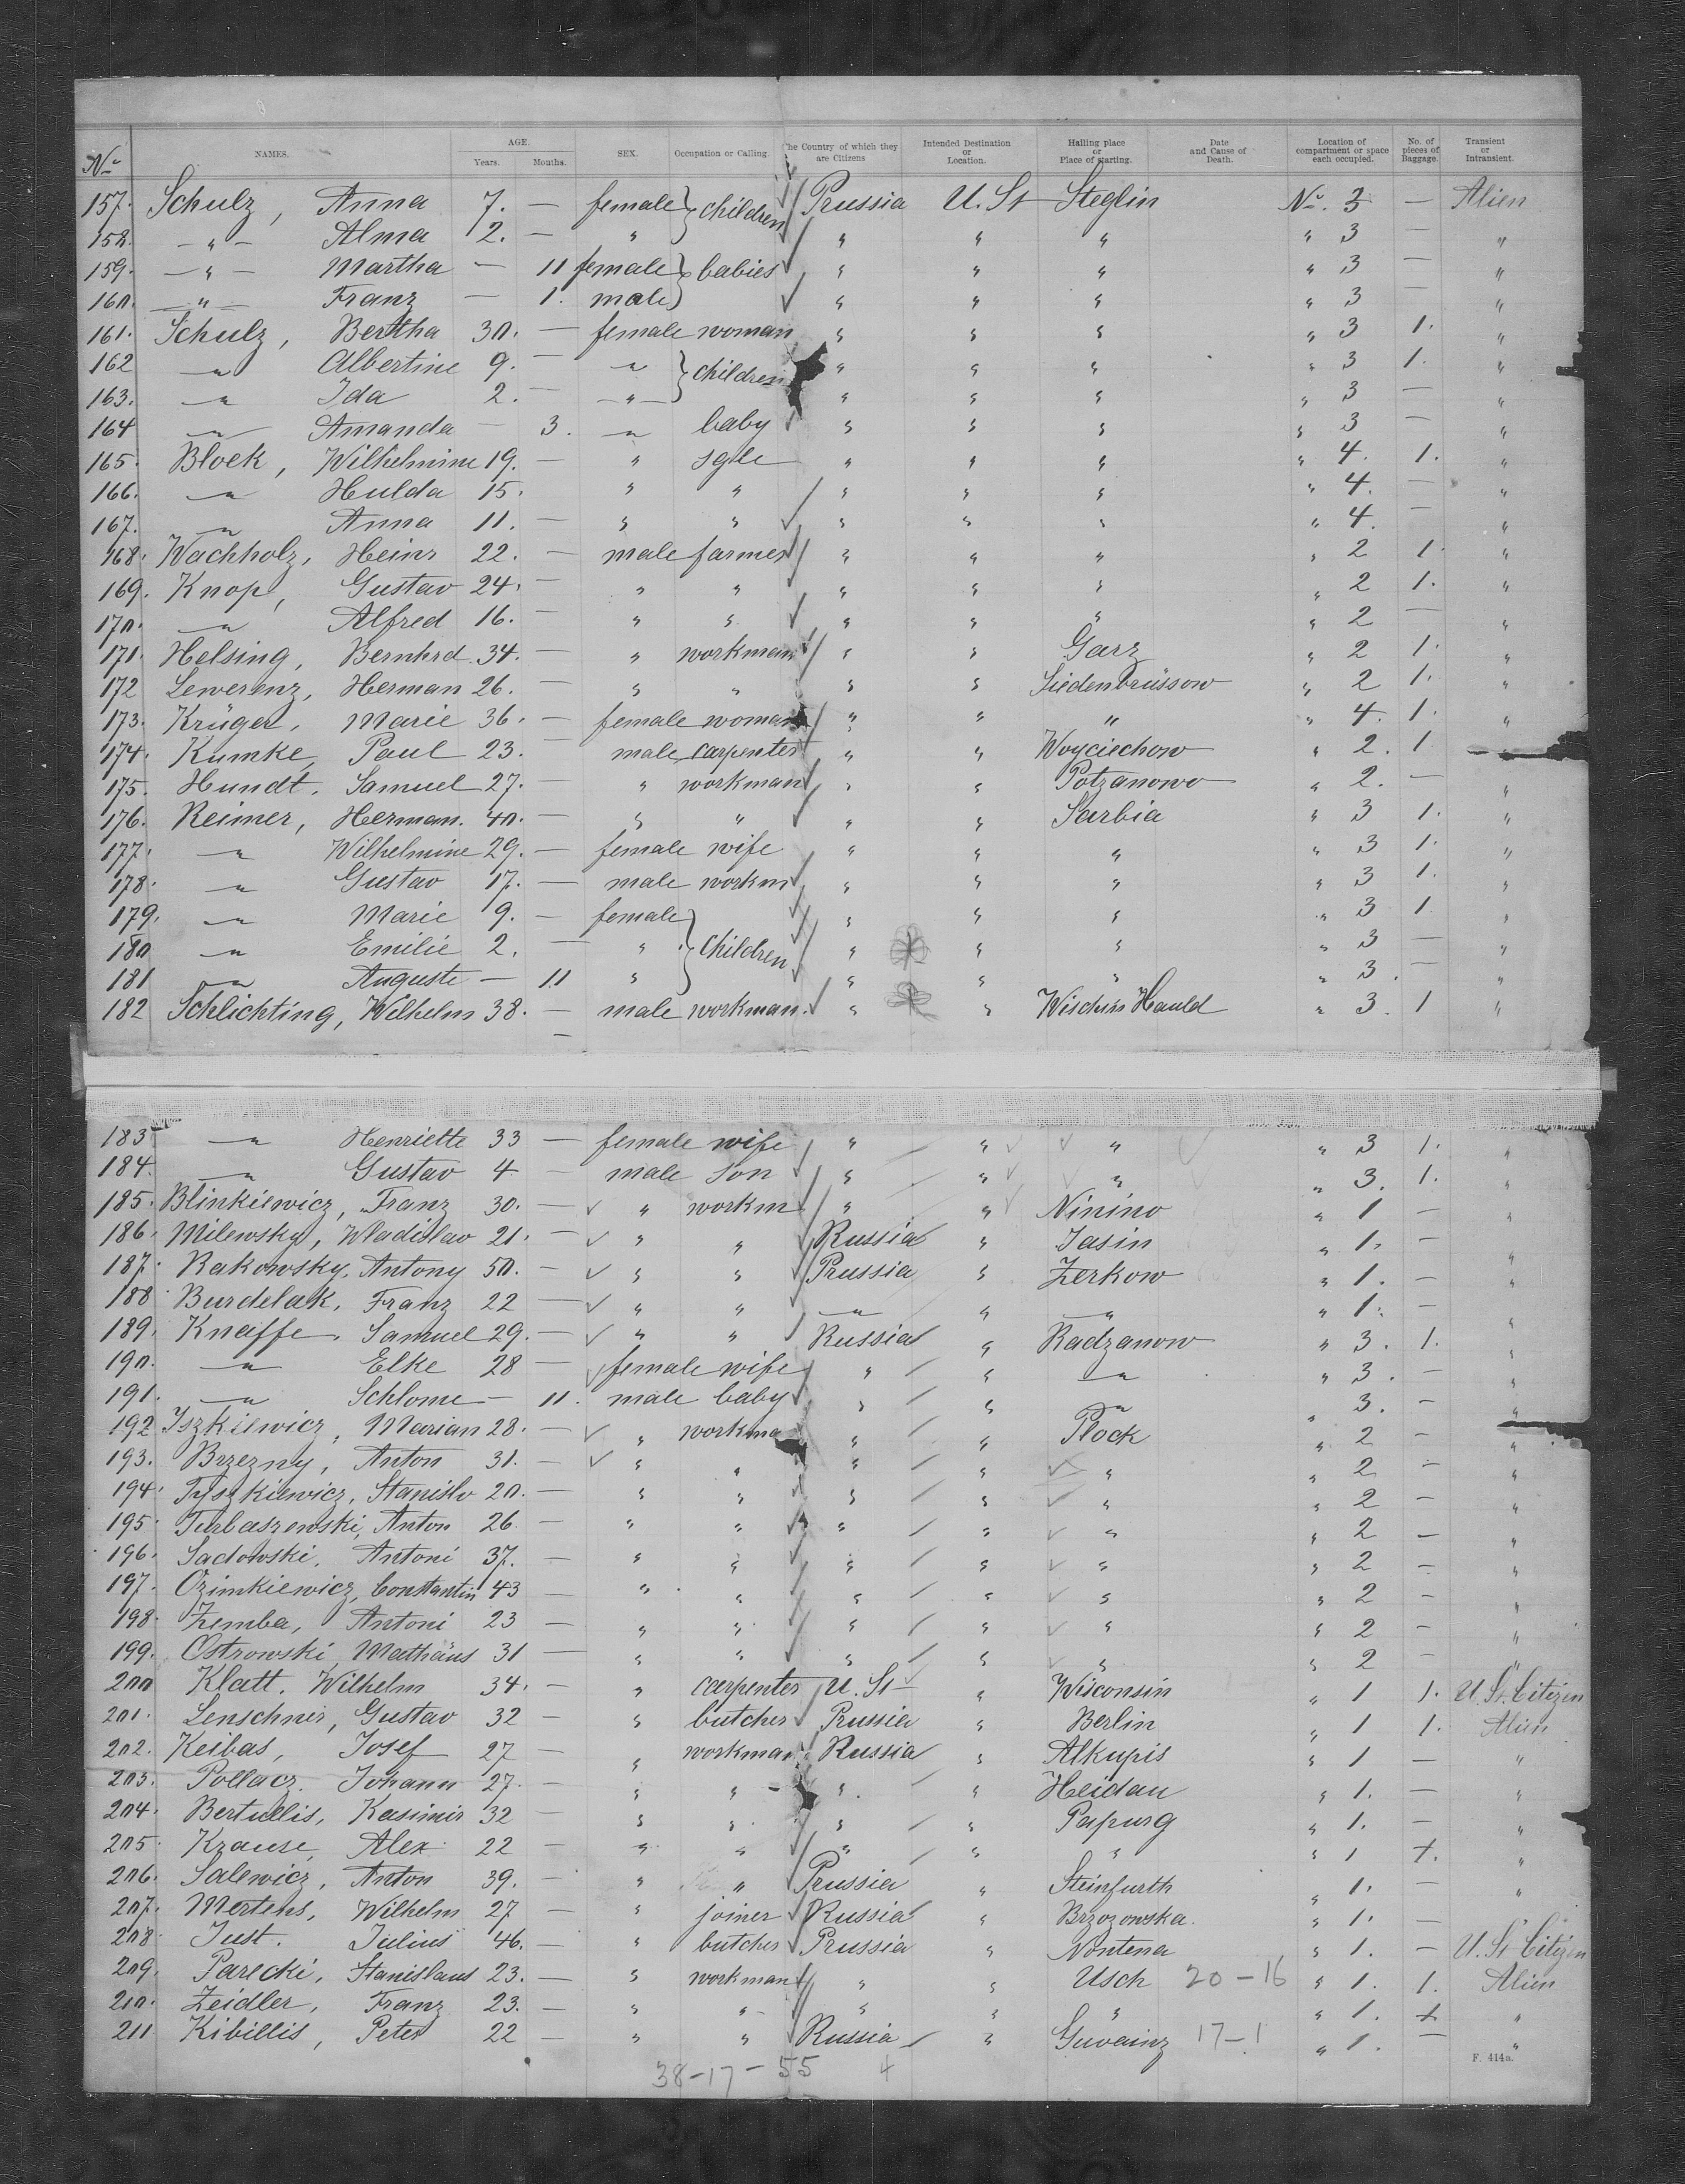 No NAMES. AGE. Years. Months. SEX. Occupation or Calling. The Country of which they are Citizens Intended Destination or Location. Hailing place or Place of starting. Date and Cause of Death. Location of compartment or space each occupied. No. of pieces of Baggage. Transient or Intransient.
157. Schulz, Anna 7. — female } children Prussia U. St Steglin No. 3 — Alien
158. — " — Alma 2. — " " " " " 3 — "
159. — " — Martha — 11 female } babies " " " " 3 — "
160. — " — Franz — 1. male " " " " 3 — "
161. Schulz, Bertha 30. — female woman " " " " 3 1. "
162 " Albertine 9. — " } children " " " " 3 1. "
163. " Ida 2. — " " " " " 3 — "
164 " Amanda — 3. " baby " " " " 3 — "
165. Block, Wilhelmine 19. — " sgle " " " " 4. 1. "
166. " Hulda 15. — " " " " " " 4. — "
167. " Anna 11. — " " " " " " 4. — "
168. Wachholz, Heinr 22. — male farmer " " " " 2 1. "
169. Knop, Gustav 24. — " " " " " " 2 1. "
170. " Alfred 16. — " " " " " " 2 — "
171. Helsing, Bernhrd. 34. — " workman " " Garz " 2 1. "
172 Lewerenz, Herman 26. — " " " " Siedenbrüssow " 2 1. "
173. Krüger, Marie 36. — female woman " " " " 4. 1. "
174. Kumke, Paul 23. — male carpenter " " Woyciechow " 2. 1
175. Hundt. Samuel 27. — " workman " " Potzanowo " 2. — "
176. Reimer, Herman. 40. — " " " " Sarbia " 3 1. "
177. " Wilhelmine 29. — female wife " " " " 3 1. "
178. " Gustav 17. — male workm " " " " 3 1. "
179. " Marie 9. — female } children " " " " 3 1 "
180 " Emilie 2. — " " " " " 3 — "
181 " Auguste — 11 " " " " " 3. — "
182 Schlichting, Wilhelm 38. — male workman. " " Wischin Hauld " 3. 1 "
183 " Henriette 33 — female wife " " " " 3 1. "
184. " Gustav 4 — male son " " " " 3. 1. "
185. Blinkiewicz, Franz 30. — " workm " " Ninino " 1 — "
186. Milewsky, Wladislav 21. — " " Russia " Jasin " 1. — "
187. Rakowsky, Antony 50. — " " Prussia " Zerkow " 1. — "
188 Burdelak, Franz 22 — " " " " " " 1. —
189. Knaffe, Samuel 29. — " " Russia " Radzanow " 3. 1. "
190. " Elke 28 — female wife " " " " 3. — "
191. " Schlome — 11. male baby " " " " 3. — "
192 Iszkiewicz, Marian 28. — " workma " " Plock " 2 — "
193. Brzezny, Anton 31. — " " " " " " 2 — "
194. Tyszkiewicz, Stanislv 20. — " " " " " " 2 — "
195. Turbaszewski, Anton 26. — " " " " " " 2 — "
196. Sadowski, Antoni 37. — " " " " " " 2 — "
197. Ozimkiewicz, Constantin 43 — " " " " " " 2 — "
198. Zemba, Antoni 23 — " " " " " " 2 — "
199. Ostrowski, Mathäus 31 — " " " " " " 2 — "
200 Klatt. Wilhelm 34. — " carpenter U. St " Wisconsin " 1 1. U. St. Citizen
201. Lenschner, Gustav 32 — " butcher Prussia " Berlin " 1 1. Alien
202. Keibas, Josef 27 — " workman Russia " Alkupis " 1 — "
203. Pollacz. Johann 27. — " " " " Heidau " 1. — "
204. Bertullis, Kasimir 32 — " " " " Papurg " 1. — "
205. Krause, Alex 22 — " " " " " " 1 +. "
206. Salewicz, Anton 39. — " " Prussia " Steinfurth " 1. — "
207. Mertens, Wilhelm 27 — " joiner Russia " Brzozowska. " 1. —
208. Just. Julius 46. — " butcher Prussia " Nontena " 1. — U. St Citizen
209. Parecki, Stanislaus 23. — " workman " " Usch 20-16 " 1. 1. Alien
210. Zeidler, Franz 23. — " " " " " " 1. + "
211 Kibillis, Peter 22 — " " Russia " Guvainz 17-1 " 1. — "
38-17-55 4
F. 414a.